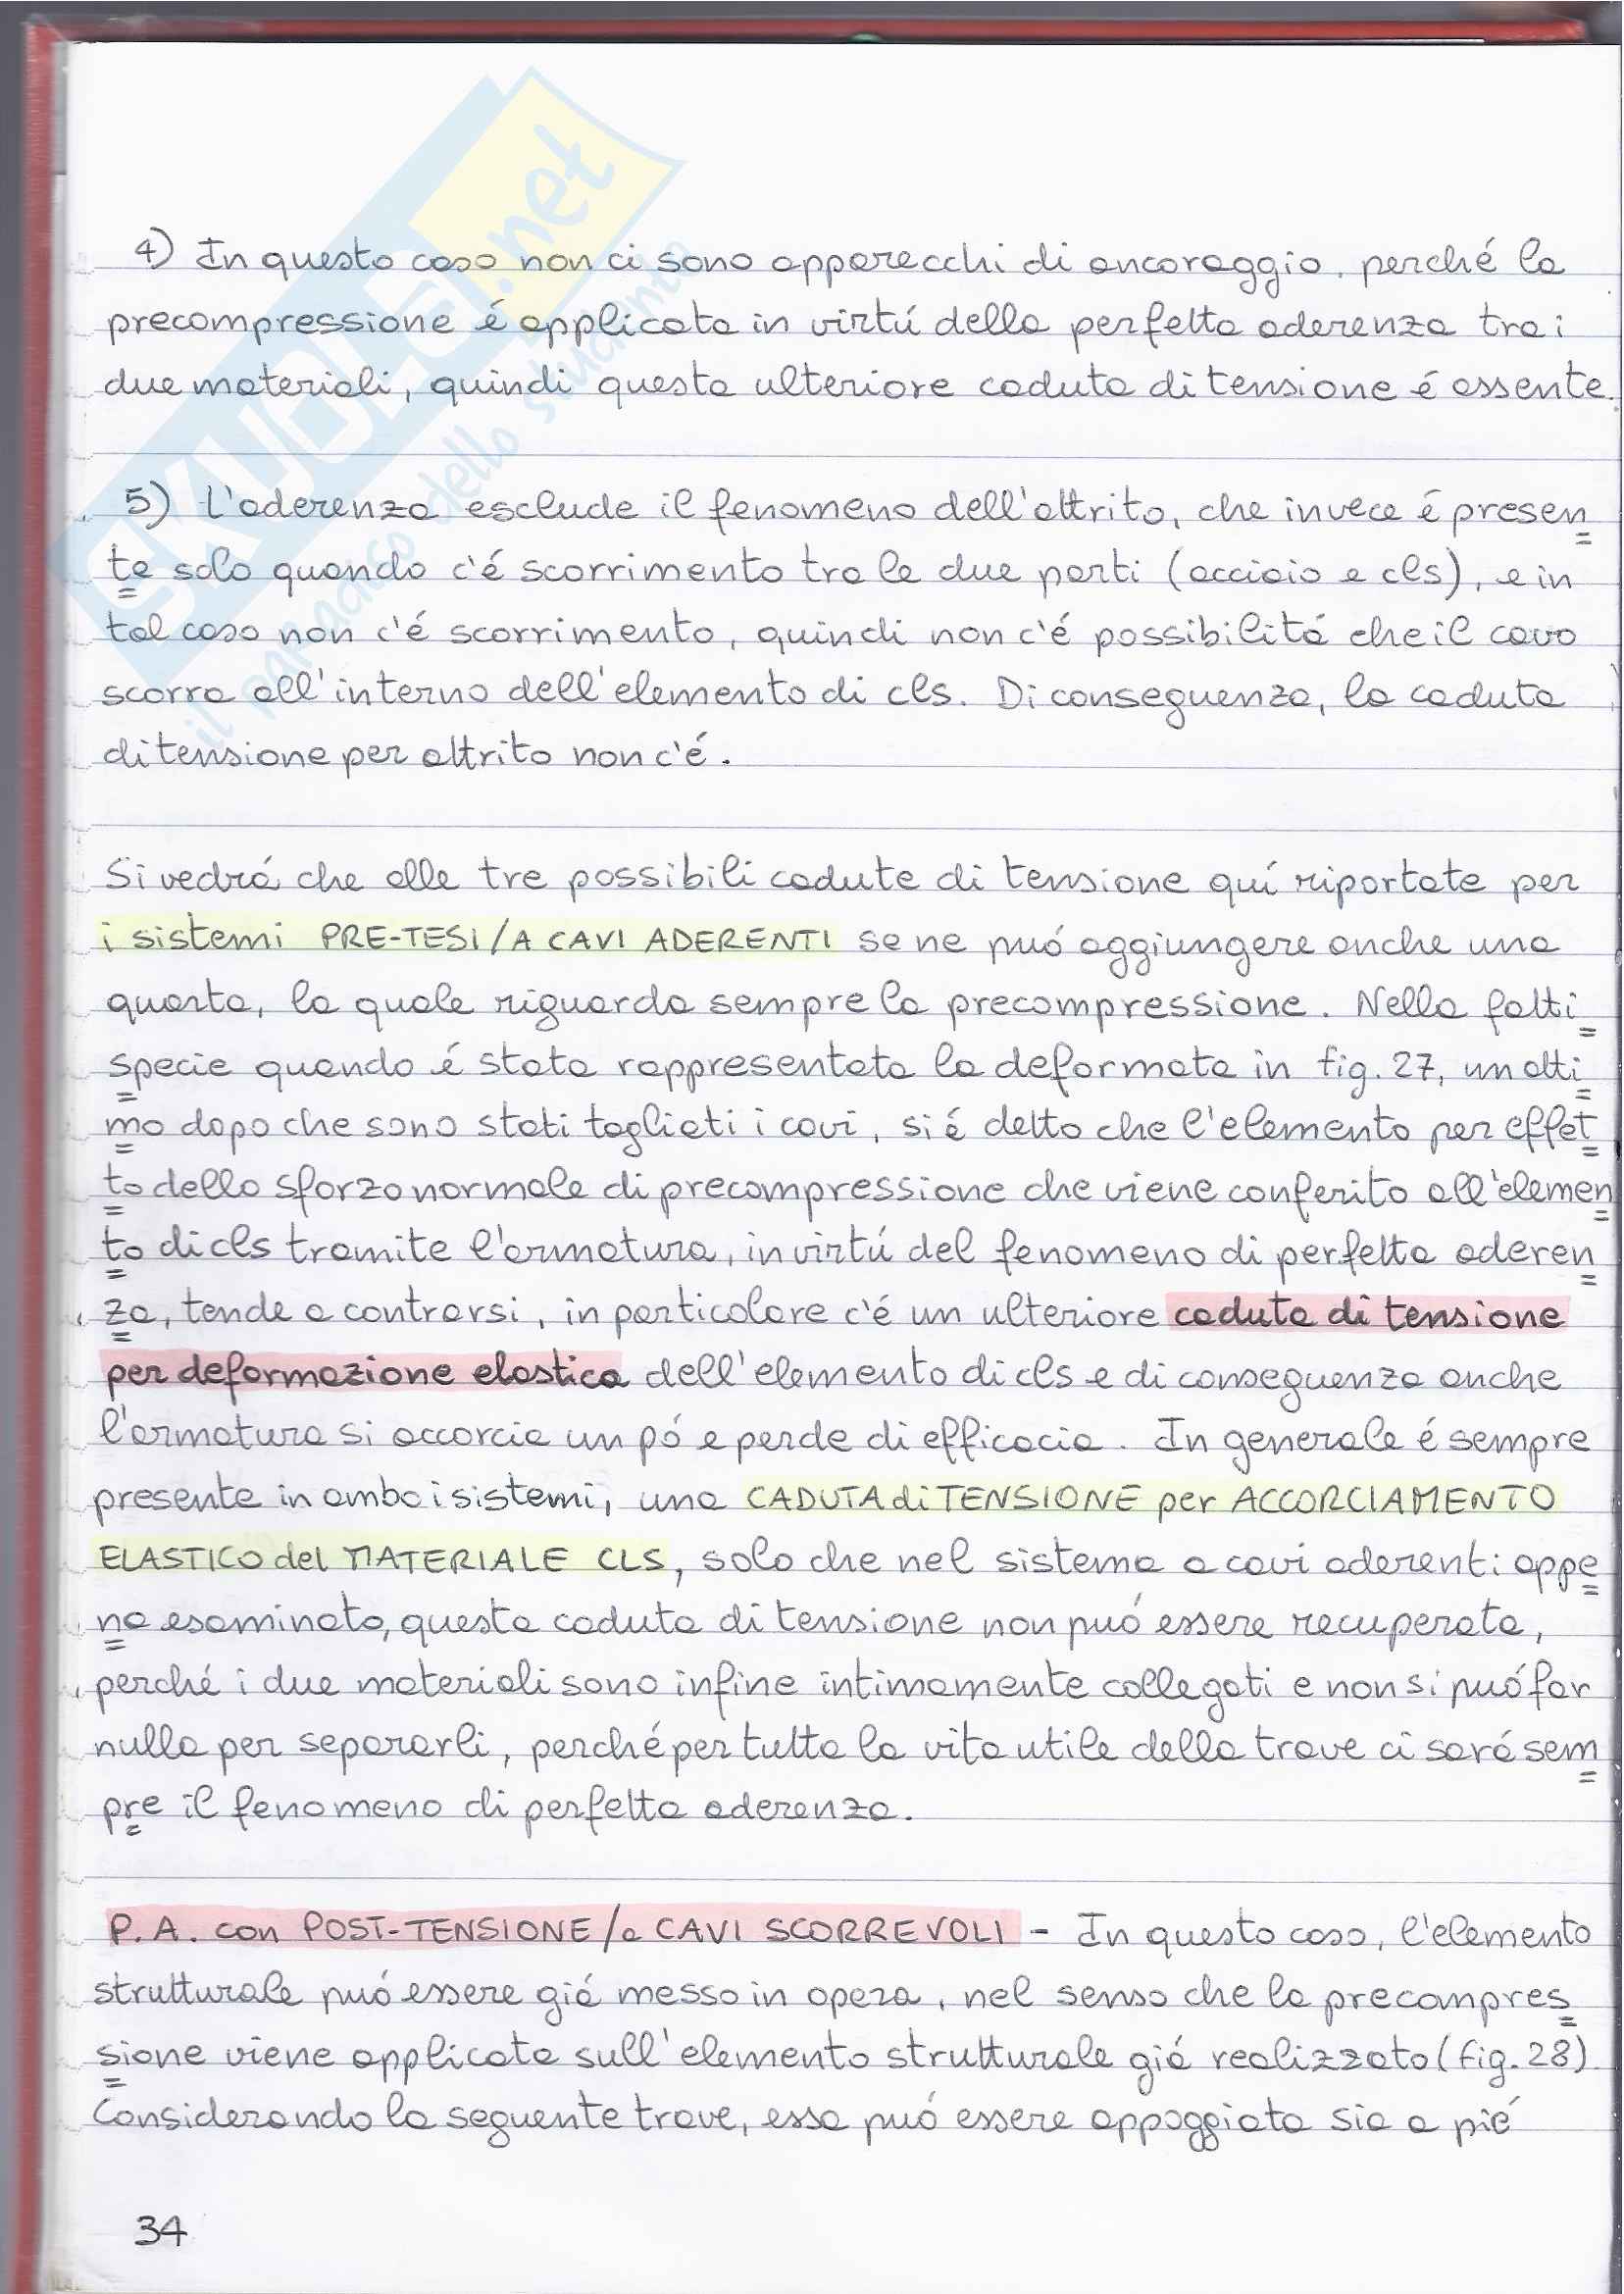 4) In questo caso non ci sono apparecchi di ancoraggio, perché la
precompressione é applicata in virtú della perfetta aderenza tra i
due materiali, quindi questa ulteriore caduta di tensione é assente.
5) L'aderenza esclude il fenomeno dell'attrito, che invece é presen
te solo quando c'é scorrimento tra le due parti (acciaio e cls), e in
tal caso non c'é scorrimento, quindi non c'é possibilitá che il cavo
scorra all'interno dell'elemento di cls. Di conseguenza, la caduta
di tensione per attrito non c'é.
Si vedrá che alle tre possibili cadute di tensione quí riportate per
i sistemi PRE-TESI/A CAVI ADERENTI se ne puó aggiungere anche una
quarta, la quale riguarda sempre la precompressione. Nella fatti
specie quando é stata rappresentata la deformata in fig. 27, un atti
mo dopo che sono stati tagliati i cavi, si é detto che l'elemento per effet
to dello sforzo normale di precompressione che viene conferito all'elemen
to di cls tramite l'armatura, in virtú del fenomeno di perfetta aderen
za, tende a contrarsi, in particolare c'é un ulteriore caduta di tensione
per deformazione elastica dell'elemento di cls e di conseguenza anche
l'armatura si accorcia un pó e perde di efficacia. In generale é sempre
presente in ambo i sistemi, una CADUTA di TENSIONE per ACCORCIAMENTO
ELASTICO del MATERIALE CLS, solo che nel sistema a cavi aderenti appe
na esaminato, questa caduta di tensione non puó essere recuperata,
perché i due materiali sono infine intimamente collegati e non si puó far
nulla per separarli, perché per tutta la vita utile della trave ci sará sem
pre il fenomeno di perfetta aderenza.
P.A. con POST-TENSIONE/a CAVI SCORREVOLI - In questo caso, l'elemento
strutturale puó essere giá messo in opera, nel senso che la precompres
sione viene applicata sull'elemento strutturale giá realizzato (fig. 28).
Considerando la seguente trave, essa puó essere appoggiata sia a pié
34
SKUOLA.net
il paradiso dello studente